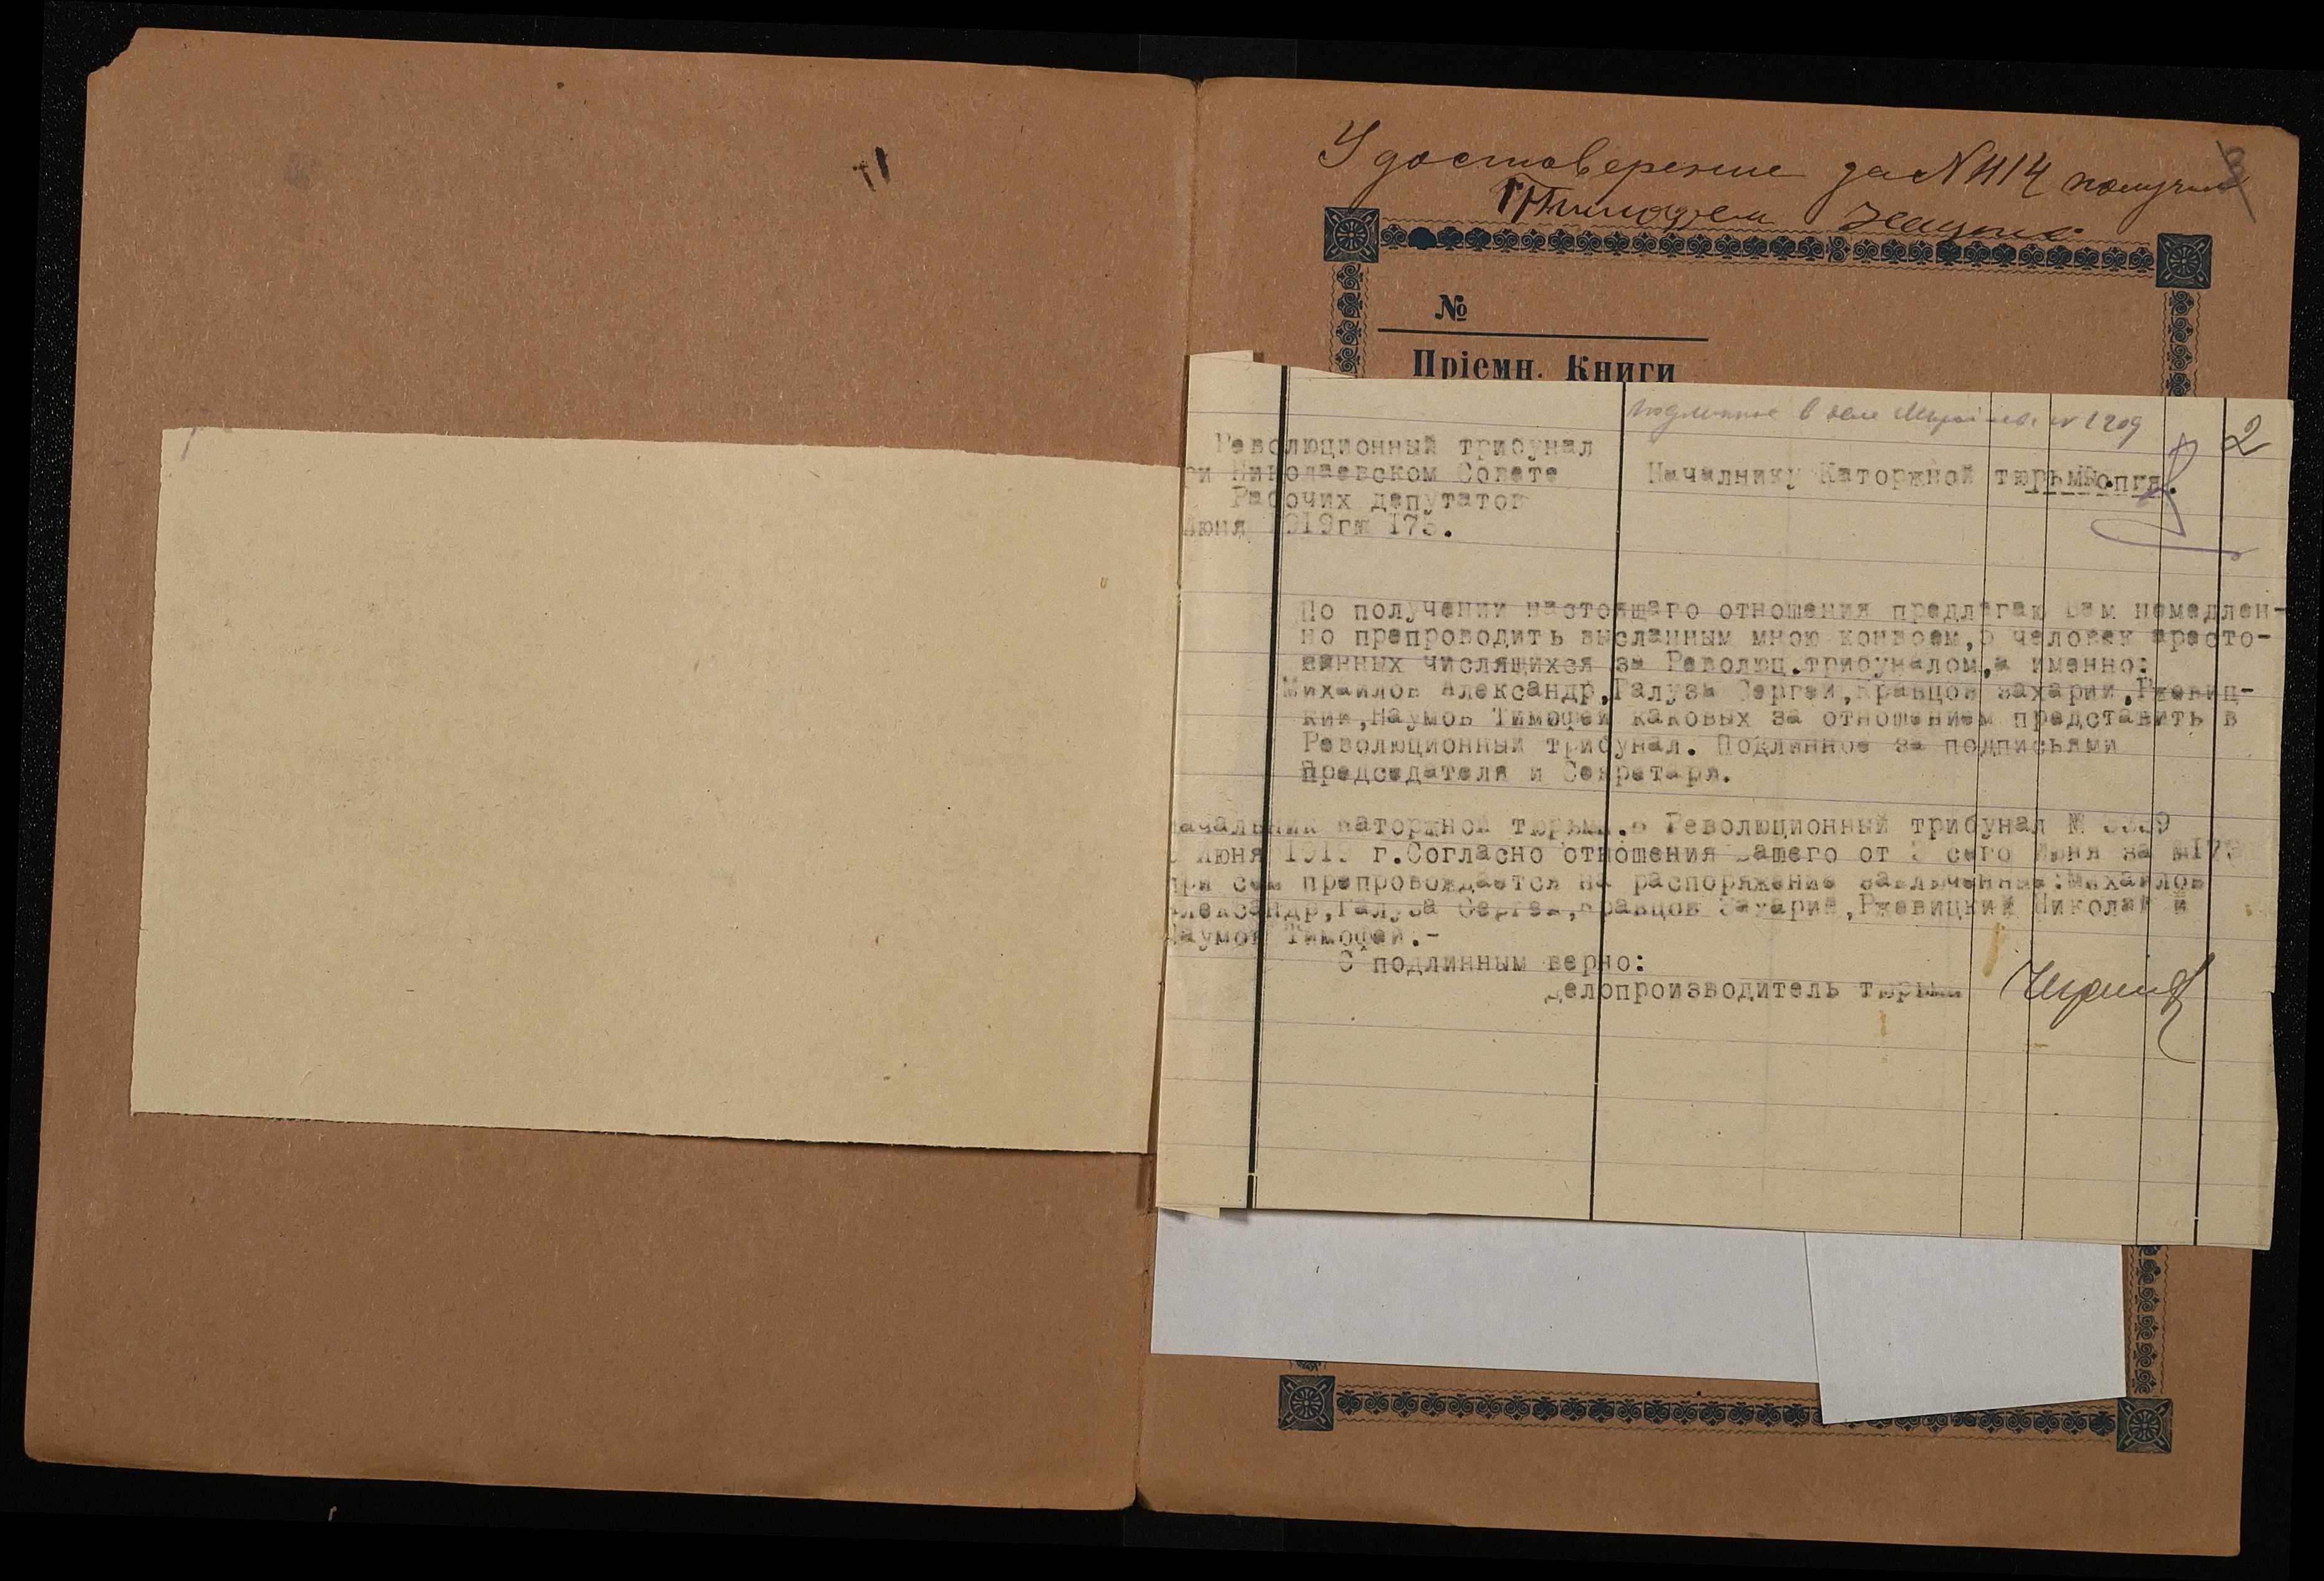 Удостоверение за N 1114 получил
Тимофей Наумов
№
Пріемн. Книги
подлинное в деле N 1209
2
Революционный трибунал
ри Николаевском Совете
Рабочих депутатов
Июня 1919г№ 173.
Началнику Каторжной тюрьмы.
Копия.
По получении настоящаго отношения предлагаю Вам немедлен-
но препроводить высланным мною конвоем,5 человек аресто-
ванных числящихся за Революц.трибуналом,а именно:
Михаилов Александр,Галуза Сергей,Кравцов Захарий,Ржевиц-
кий,Наумов Тимофей каковых за отношением представить в
Революционный трибунал. Подлинное за подписьями
Председателя и Секретаря.
ачальник каторжной тюрьмы.в Революционный трибунал №
Июня 1919 г.Согласно отношения Вашего от 3 сего Июня за №173
при сем препровождается на распоряжение заключенные:Михаилов
лександр,Галуза Сергей,Кравцов Захарий,Ржевицкий Николай и
Наумов Тимофей.-
С подлинным верно:
Делопроизводитель тюрьмы